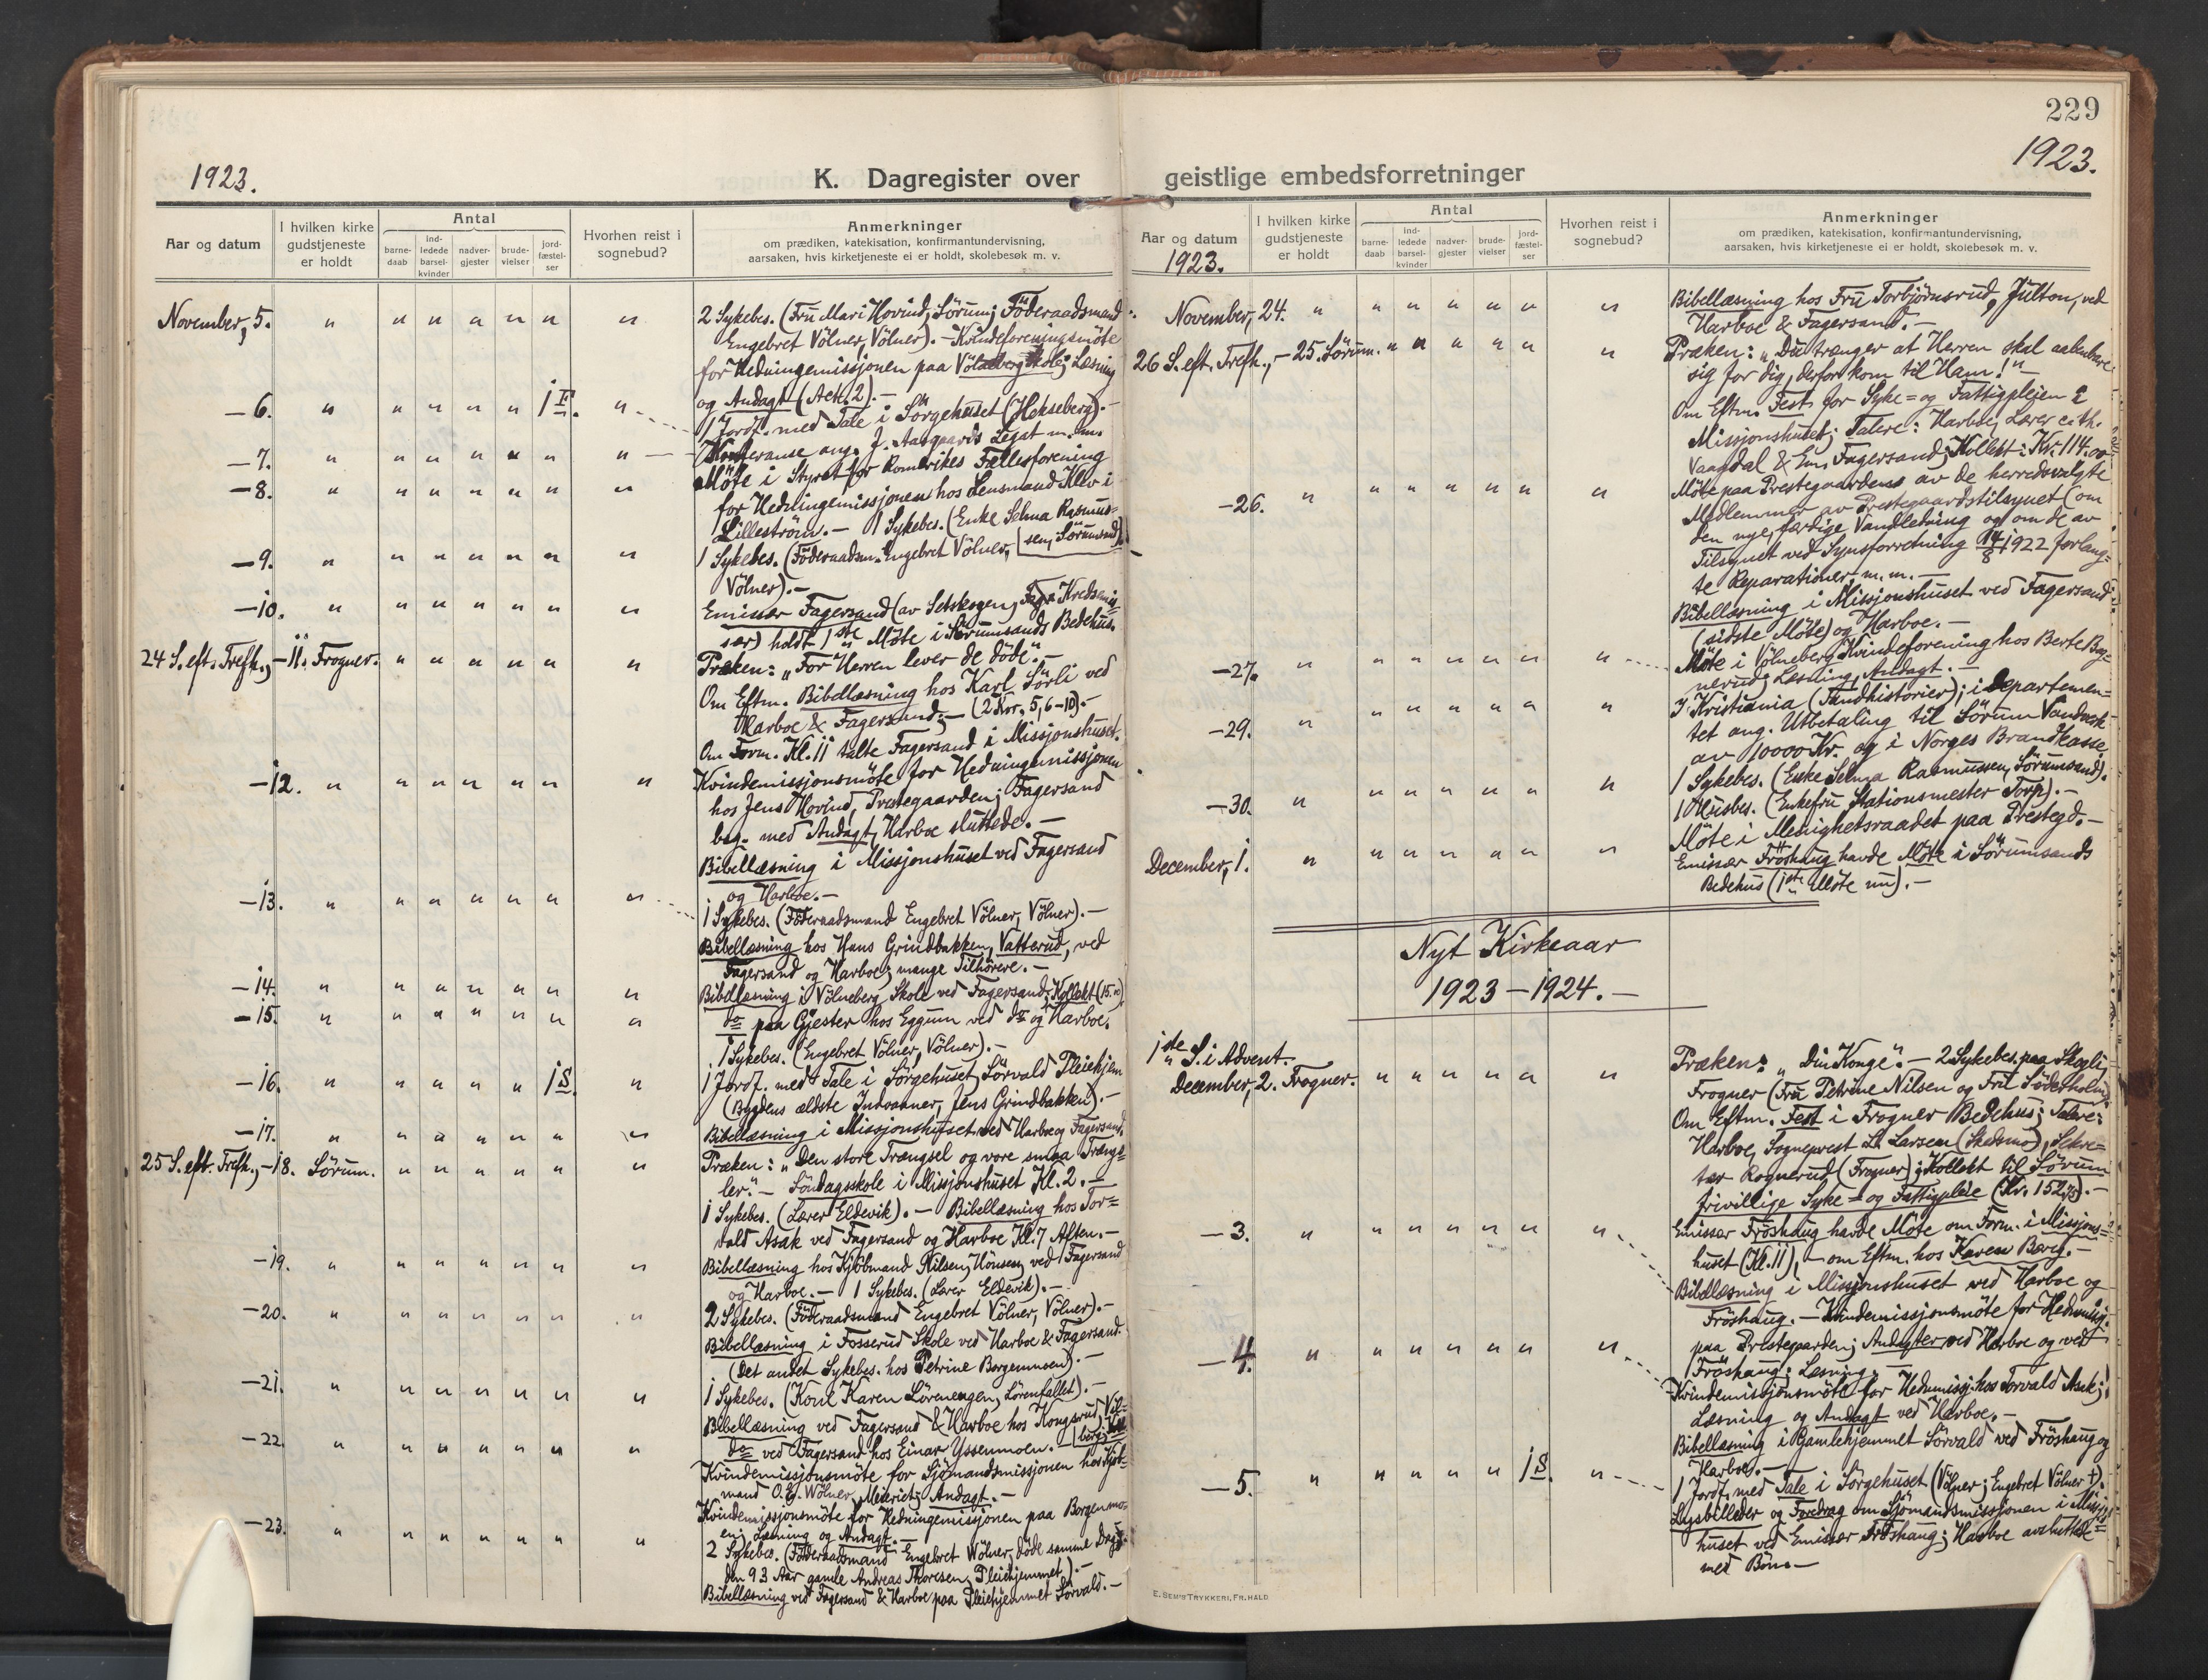 229
1923.
1923.
K. Dagregister over
geistlige embedsforretninger
Aar og datum
I hvilken kirke gudstjeneste er holdt
Antal
barne-daab
ind-ledede barsel-kvinder
nadver-gjester
brude-vielser
jord-fæstel-ser
Hvorhen reist i sognebud?
Anmerkninger
om prædiken, katekisation, konfirmantundervisning,
aarsaken, hvis kirketjeneste ei er holdt, skolebesøk m. v.
November, 5. " " " " " " "
2 Sykebes. (Fru Mari Hovind, Sörum; Föderaadsmand
Engebret Völner, Völner). – Kvindeforeningsmöte
for Hedningemissjonen paa Völneberg Skole; Læsning
og Andagt (Act. 2). –
– 6. " " " " " 1 F. "
1 Jordf. med Tale i Sörgehuset (Hekseberg). –
– 7. " " " " " " "
Konferanse ang. J. Aasgaards Legat m.m.
– 8. " " " " " " "
Möte i Styret for Romerikes Fællesforening
for Hedningemissjonen hos Lensmand Klev i
Lilleström. – 1 Sykebes. (Enke Selma Rasmus=
sen, Sörumsand)
– 9. " " " " " " "
1 Sykebes. (Föderaadsm. Engebret Völner,
Völner). –
– 10. " " " " " " "
Emissær Fagersand (av Setskogen, Kredsemis=
sær) holdt 1ste Möte i Sörumsands Bedehus.
24 S. eft. Trefh., – 11. Frogner. " " " " " "
Præken: „For Herren lever de döde". –
Om Eftm. Bibellæsning hos Karl Sörli ved
Harboe & Fagersand; – (2 Kor. 5, 6–10). –
Om Form. Kl. 11 talte Fagersand i Missjonshuset.
– 12. " " " " " " "
Kvindemissjonsmöte for Hedningemissjonen
hos Jens Hovind, Prestegaarden; Fagersand
beg. med Andagt, Harboe sluttede. –
Bibellæsning i Missjonshuset ved Fagersand
og Harboe. –
– 13. " " " " " " "
1 Sykebes. (Föderaadsmand Engebret Völner, Völner). –
Bibellæsning hos Hans Grindbakken, Vatterud, ved
Fagersand og Harboe; mange Tilhörere. –
– 14. " " " " " " "
Bibellæsning i Völneberg Skole ved Fagersand; Kollekt (15.00)
– 15. " " " " " " "
do paa Gjester hos Eggum ved do og Harboe.
1 Sykebes. (Engebret Völner, Völner). –
– 16. " " " " " 1 S. "
1 Jordf. med Tale i Sörgehuset, Sörvald Pleiehjem
(Bygdens ældste Indvaaner, Jens Grindbakken). –
– 17. " " " " " " "
Bibellæsning i Missjonshuset ved Harboe og Fagersand.
25 S. eft. Trefh., – 18. Sörum. " " " " " "
Præken: „Den store Trængsel og vore smaa Trængs=
ler". – Söndagsskole i Missjonshuset Kl. 2. –
1 Sykebes. (Lærer Eldevik). – Bibellæsning hos Tor=
vald Asak ved Fagersand og Harboe Kl. 7 Aften. –
– 19. " " " " " " "
Bibellæsning hos Kjöbmand Nilsen, Hönsen, ved Fagersand
og Harboe. – 1 Sykebes. (Lærer Eldevik). –
– 20. " " " " " " "
2 Sykebes. (Föderaadsmand Engebret Völner, Völner). –
Bibellæsning i Fosserud Skole ved Harboe & Fagersand.
(Det andet Sykebes. hos Petrine Borgenmoen). –
– 21. " " " " " " "
1 Sykebes. (Kone Karen Lörenengen, Lörenfallet). –
Bibellæsning ved Fagersand & Harboe hos Kongsrud,
– 22. " " " " " " "
do ved Fagersand hos Einar Yssenmoen. –
Kvindemissjonsmöte for Sjömandsmissjonen hos Kjöb=
mand O. E. Wölner, Meieriet; Andagt. –
– 23. " " " " " " "
Kvindemissjonsmöte for Hedningemissjonen paa Borgenmo=
en; Læsning og Andagt. –
2 Sykebes. (Föderaadsmand Engebret Wölner, döde samme Dag;
den 93 Aar gamle Andreas Thoresen, Pleiehjemmet). –
Bibellæsning ved Fagersand & Harboe paa Pleiehjemmet Sörvald. –
Aar og datum
1923.
I hvilken kirke gudstjeneste er holdt
Antal
barne-daab
ind-ledede barsel-kvinder
nadver-gjester
brude-vielser
jord-fæstel-ser
Hvorhen reist i sognebud?
Anmerkninger
om prædiken, katekisation, konfirmantundervisning,
aarsaken, hvis kirketjeneste ei er holdt, skolebesøk m. v.
November, 24. " " " " " " "
Bibellæsning hos Fru Torbjörnsrud, Julton, ved
Harboe & Fagersand. –
26 S. eft. Trefh., – 25. Sörum. " " " " " "
Præken: „Du trænger at Herren skal aabenbare
sig for dig, derfor kom til Ham!" –
Om Eftm. Fest for Syke= og Fattigpleien i
Missjonshuset; Talere: Harboe, Lærer
Vaagdal & Em. Fagersand; Kollekt: Kr. 114.00
– 26. " " " " " " "
Möte paa Prestegaarden av de herredsvalgte
Medlemmer av Prestegaardstilsynet (om
den nye, færdige Vandledning og om de av
Tilsynet ved Synsforretning 14/8 1922 forlang=
te Reparationer, m. m. –
Bibellæsning i Missjonshuset ved Fagersand
(sidste Möte) og Harboe. –
– 27. " " " " " " "
Möte i Völneberg Kvindeforening hos Berte
Læsning, Andagt. –
– 29. " " " " " " "
I Kristiania (Tandhistorier); i Departemen=
tet ang. Utbetaling til Sörum Vandverk
av 10000 Kr. og i Norges Brandkasse
– 30. " " " " " " "
1 Sykebes. (Enke Selma Rasmussen, Sörumsand).
1 Husbes. (Enkefru Stationsmester Torp). –
Möte i Menighetsraadet paa Prestegd. –
December, 1. " " " " " " "
Emissær Fröshaug havde Möte i Sörumsands
Bedehus (1ste Möte nu). –
Nyt Kirkeaar
1923 – 1924. –
1ste S. i Advent.
December, 2. Frogner. " " " " " "
Præken: „Din Konge". – 2 Sykebes. paa Skogli,
Frogner (Fru Petrine Nilsen og Fru Söderholm).
Om Eftm. Fest i Frogner Bedehus; Talere:
Harboe, Sogneprest L. Larsen (Skedsmo), Sekre=
tær Rognerud (Frogner); Kollekt til Sörum
frivillige Syke= og Fattigpleie (Kr. 152,75). –
– 3. " " " " " " "
Emissær Fröshaug havde Möte om Form. i Missjons=
huset (Kl. 11), – om Eftm. hos Karen Bærg. –
Bibellæsning i Missjonshuset ved Harboe og
Fröshaug. – Kvindemissjonsmöte for Hedmissj.
paa Prestegaarden; Andagter ved Harboe og ved
Fröshaug; Læsning. –
– 4. " " " " " " "
Kvindemissjonsmöte for Hedmissj. hos Torvald Asak;
Læsning og Andagt ved Harboe. –
Bibellæsning i Gamlehjemmet Sörvald ved Fröshaug og
Harboe. –
– 5. " " " " " 1 S. "
1 Jordf. med Tale i Sörgehuset (Völner; Engebret Völner †).
Lysbilleder og Foredrag om Sjömandsmissjonen i Missjs=
huset ved Emissær Fröshaug; Harboe avsluttede
med Bön. –
E. SEM'S TRYKKERI, FR.HALD